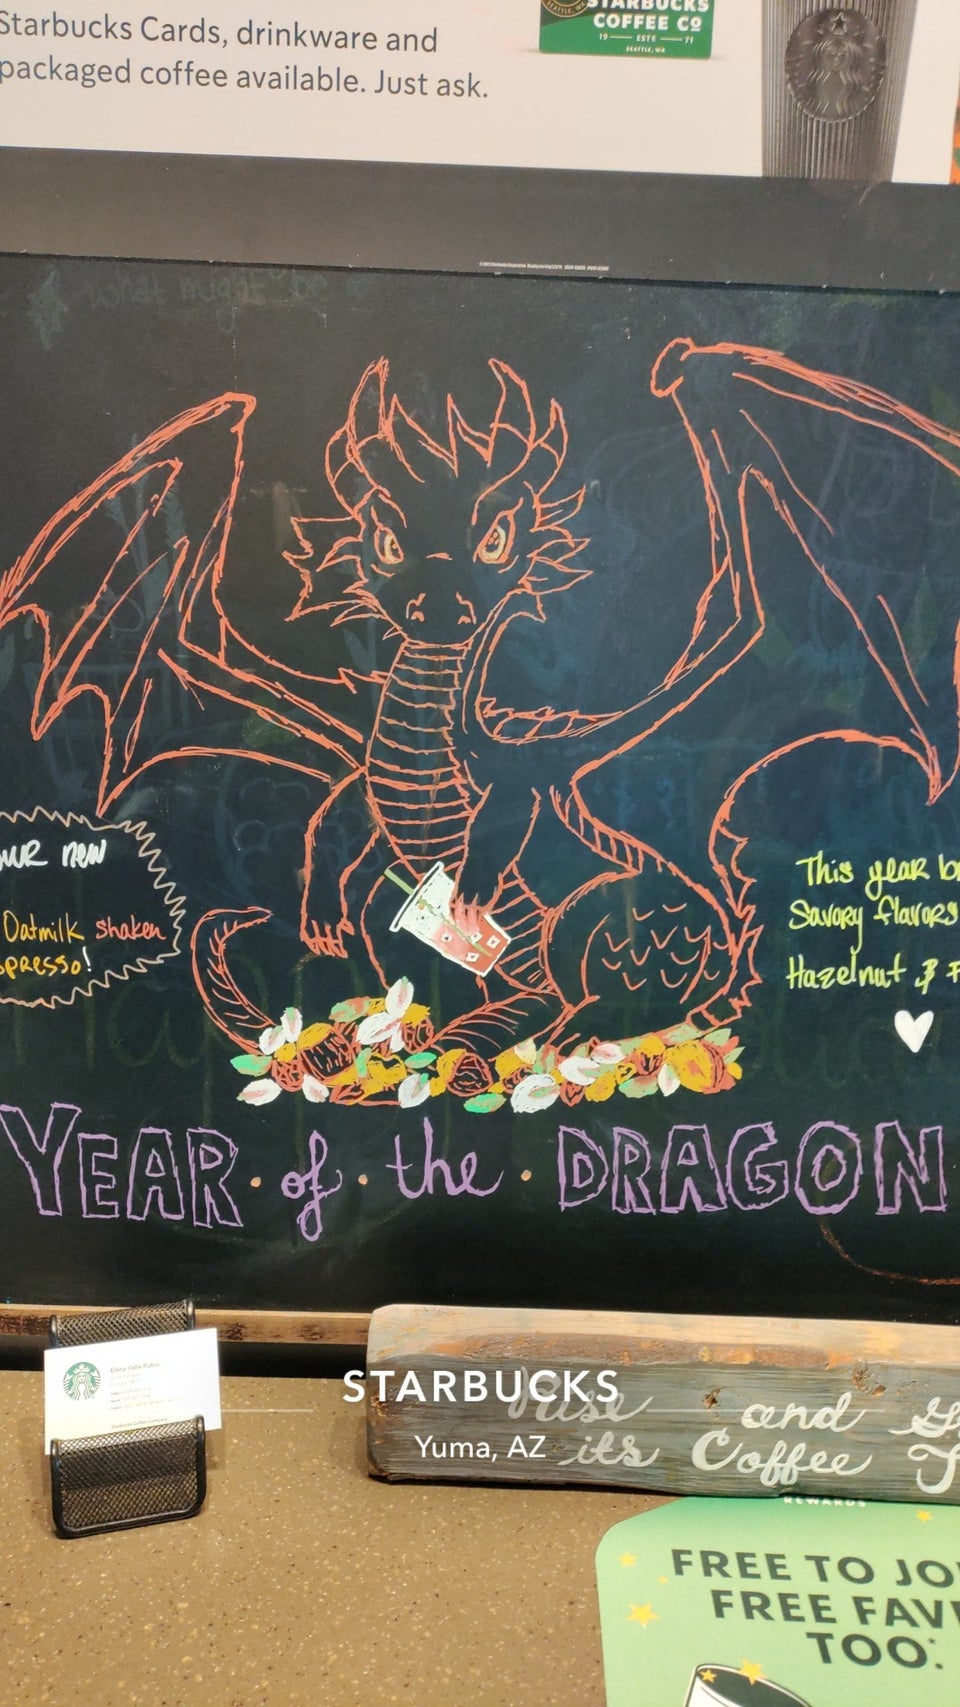 Starbucks Cards, drinkware and
packaged coffee available. Just ask.
STARBUCKS
COFFEE CO
19 ESTD 71
SEATTLE, WA
what might
our new
Oatmilk shaken
presso!
This year b
Savory flavors
Hazelnut &
YEAR · of · the · DRAGON
Elena Valle-Rubio
Starbucks Coffee Company
STARBUCKS
Yuma, AZ
Rise and
its Coffee
REWARDS
FREE TO JO
FREE FAV
TOO.